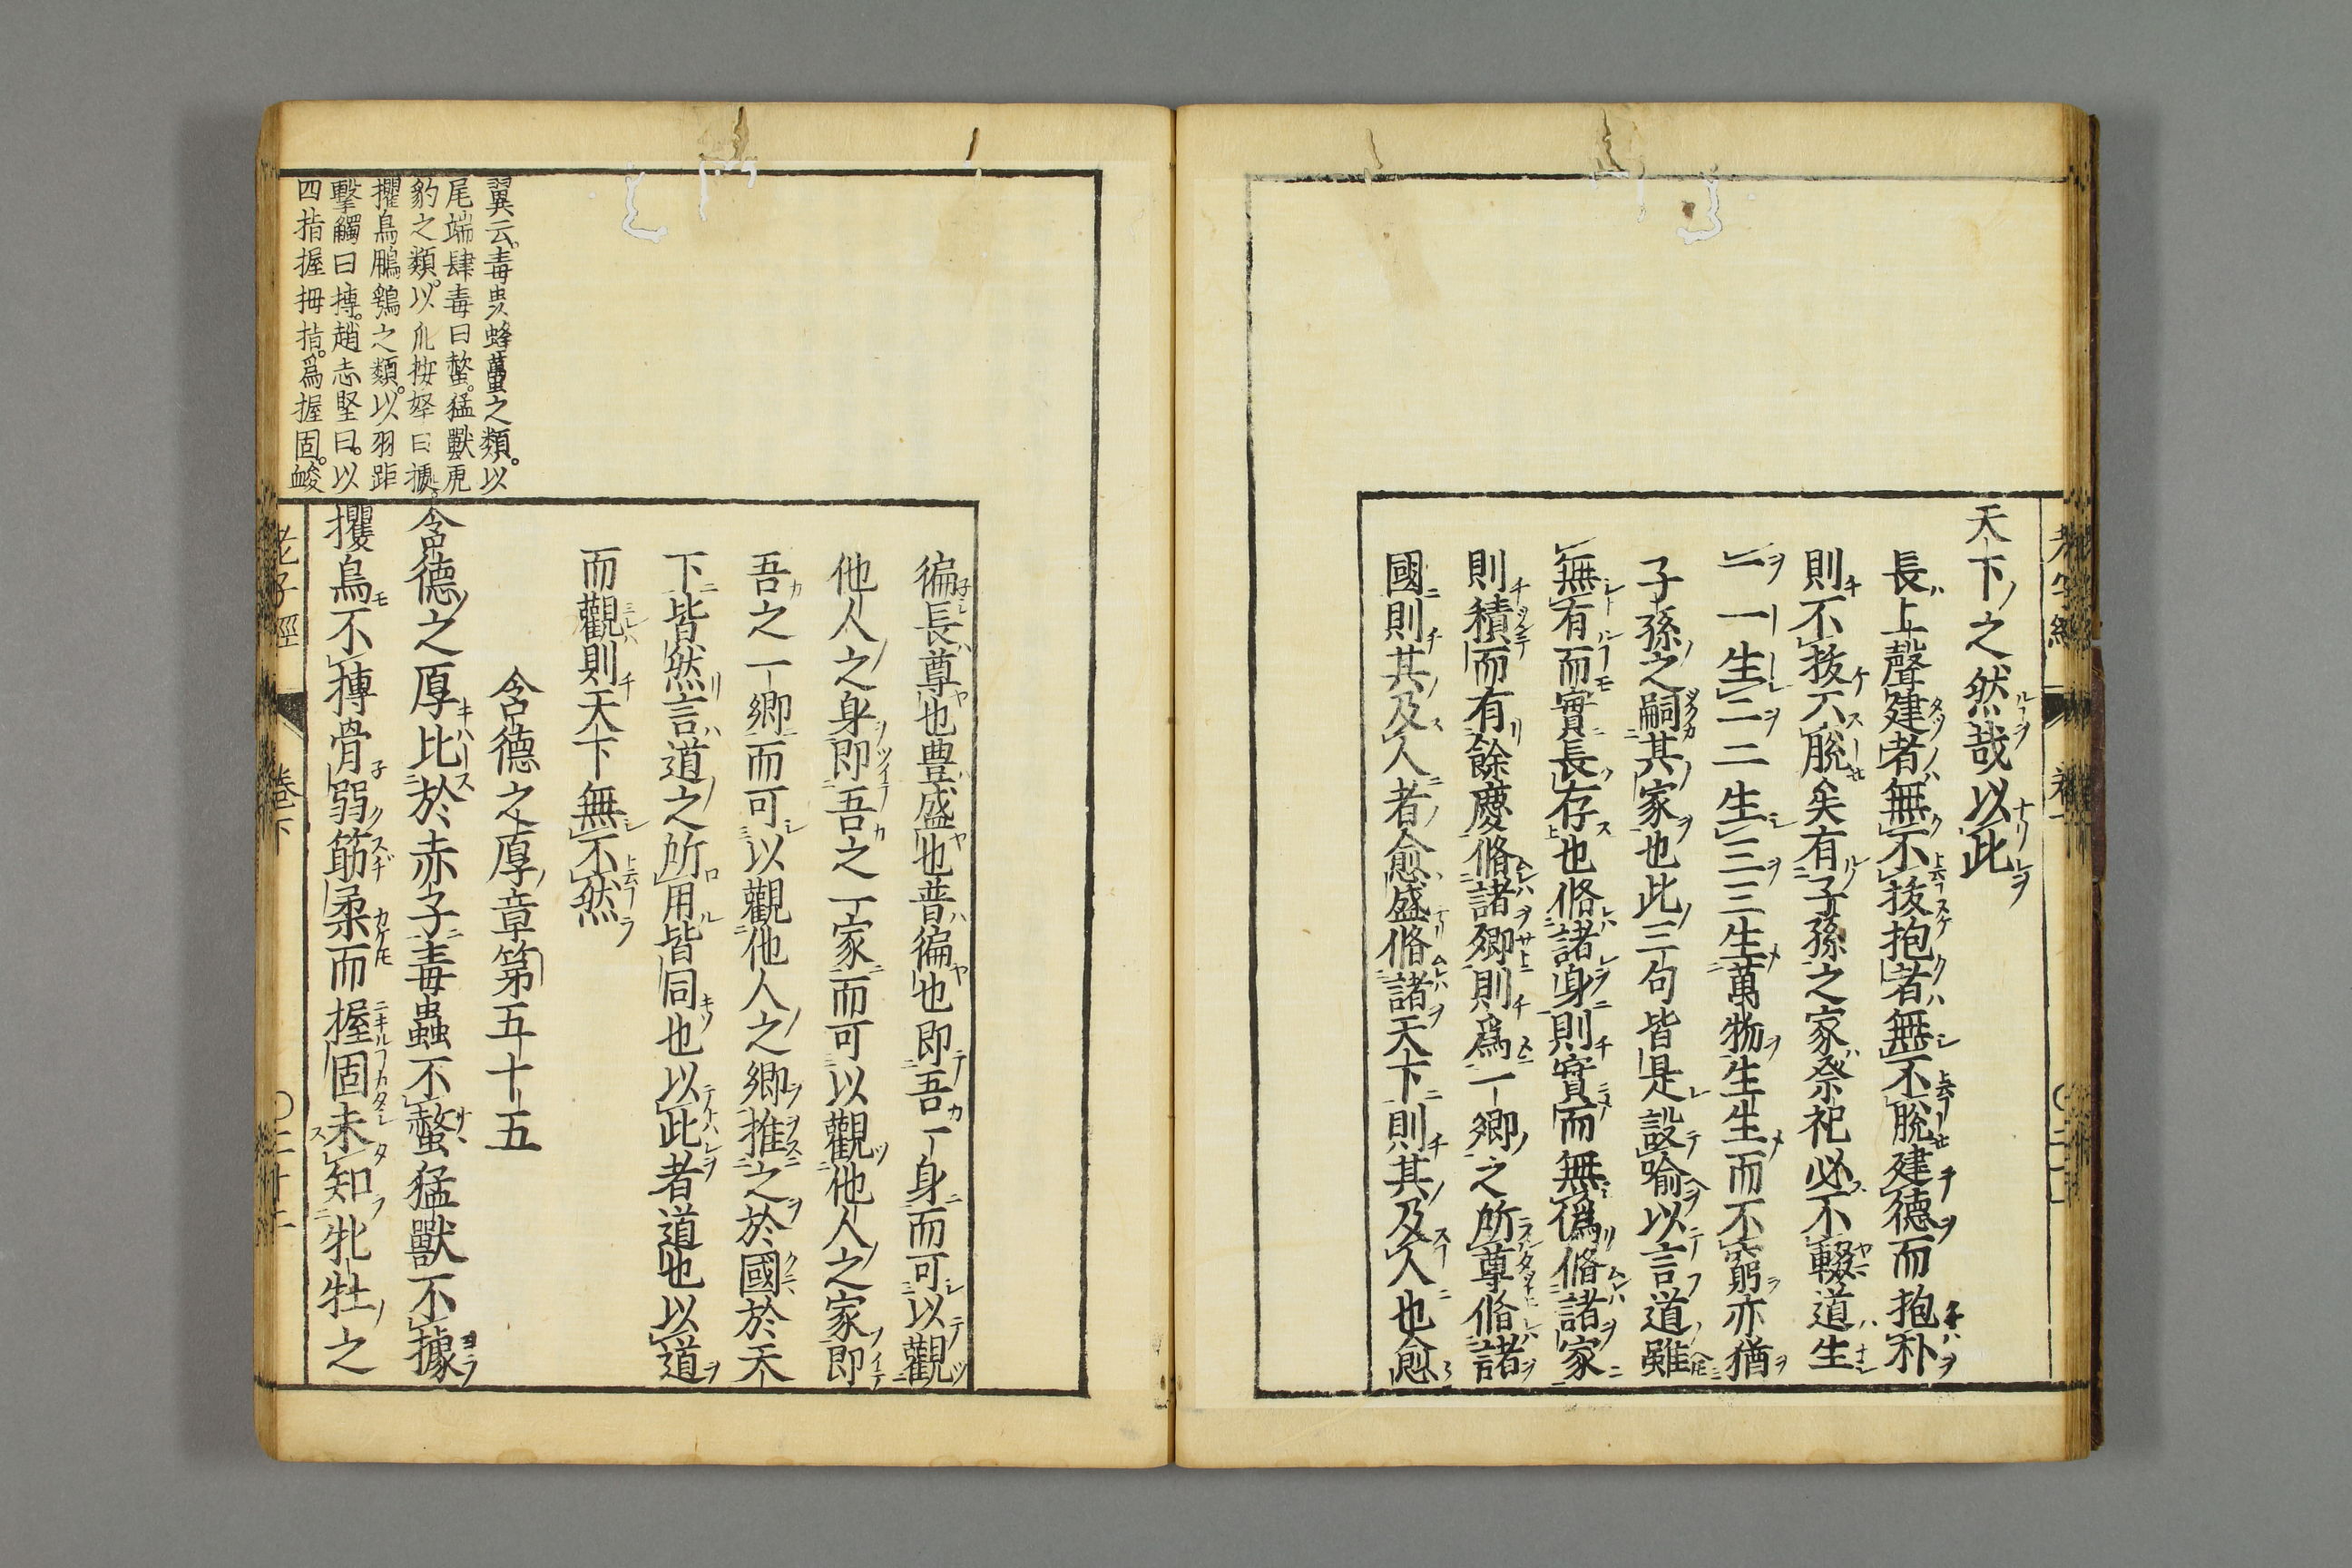 天下之然哉以此
長上聲建者無不拔抱者無不脫建德而抱朴
則不拔不脫矣有子孫之家祭祀必不輟道生
一一生二二生三三生萬物生生而不窮亦猶
子孫之嗣其家也此三句皆是設喻以言道雖
無有而實長存也脩諸身則實而無僞脩諸家
則積而有餘慶脩諸鄉則爲一鄉之所尊脩諸
國則其及人者愈盛脩諸天下則其及人也愈
徧長尊也豊盛也普徧也即吾一身而可以觀
他人之身即吾之一家而可以觀他人之家即
吾之一鄉而可以觀他人之鄉推之於國於天
下皆然言道之所用皆同也以此者道也以道
而觀則天下無不然
含德之厚章第五十五
含德之厚比於赤子毒蟲不螫猛獸不據
攫鳥不搏骨弱筋柔而握固未知牝牡之
翼云毒虫蜂蠆之類以
尾端肆毒曰螫猛獸虎
豹之類以爪按拏曰據
攫鳥鵰鶚之類以羽距
擊觸曰搏趙志堅曰以
四指握拇指爲握固䘒
老子經 卷下 〇二十二